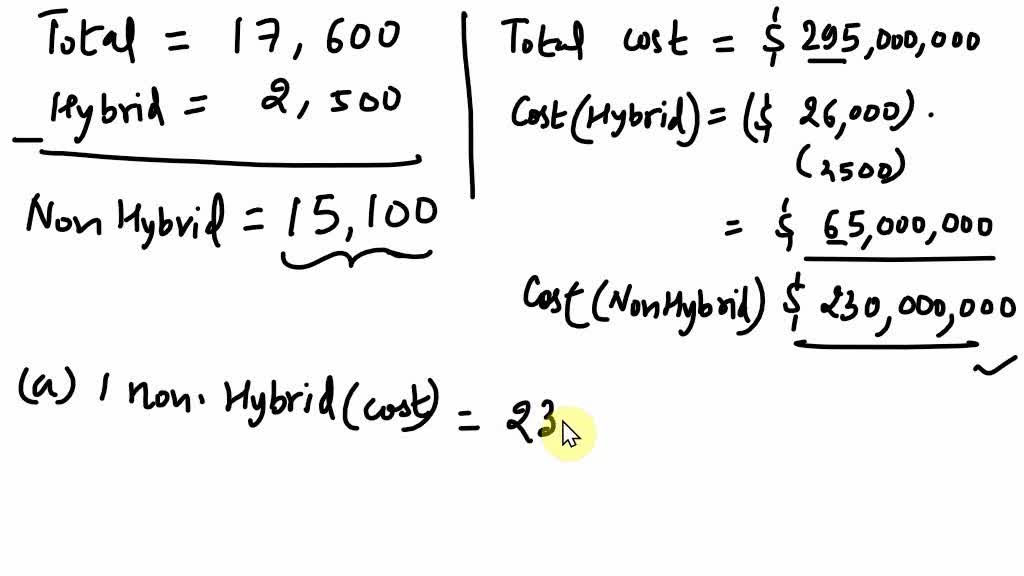 Total = 17,600
Hybrid = 2,500
Non Hybrid = 15,100
Total cost = $ 295,000,000
Cost(Hybrid) = ($ 26,000) .
(2500)
= $ 65,000,000
Cost(NonHybrid) $ 230,000,000
(a) 1 non. Hybrid(cost) = 23